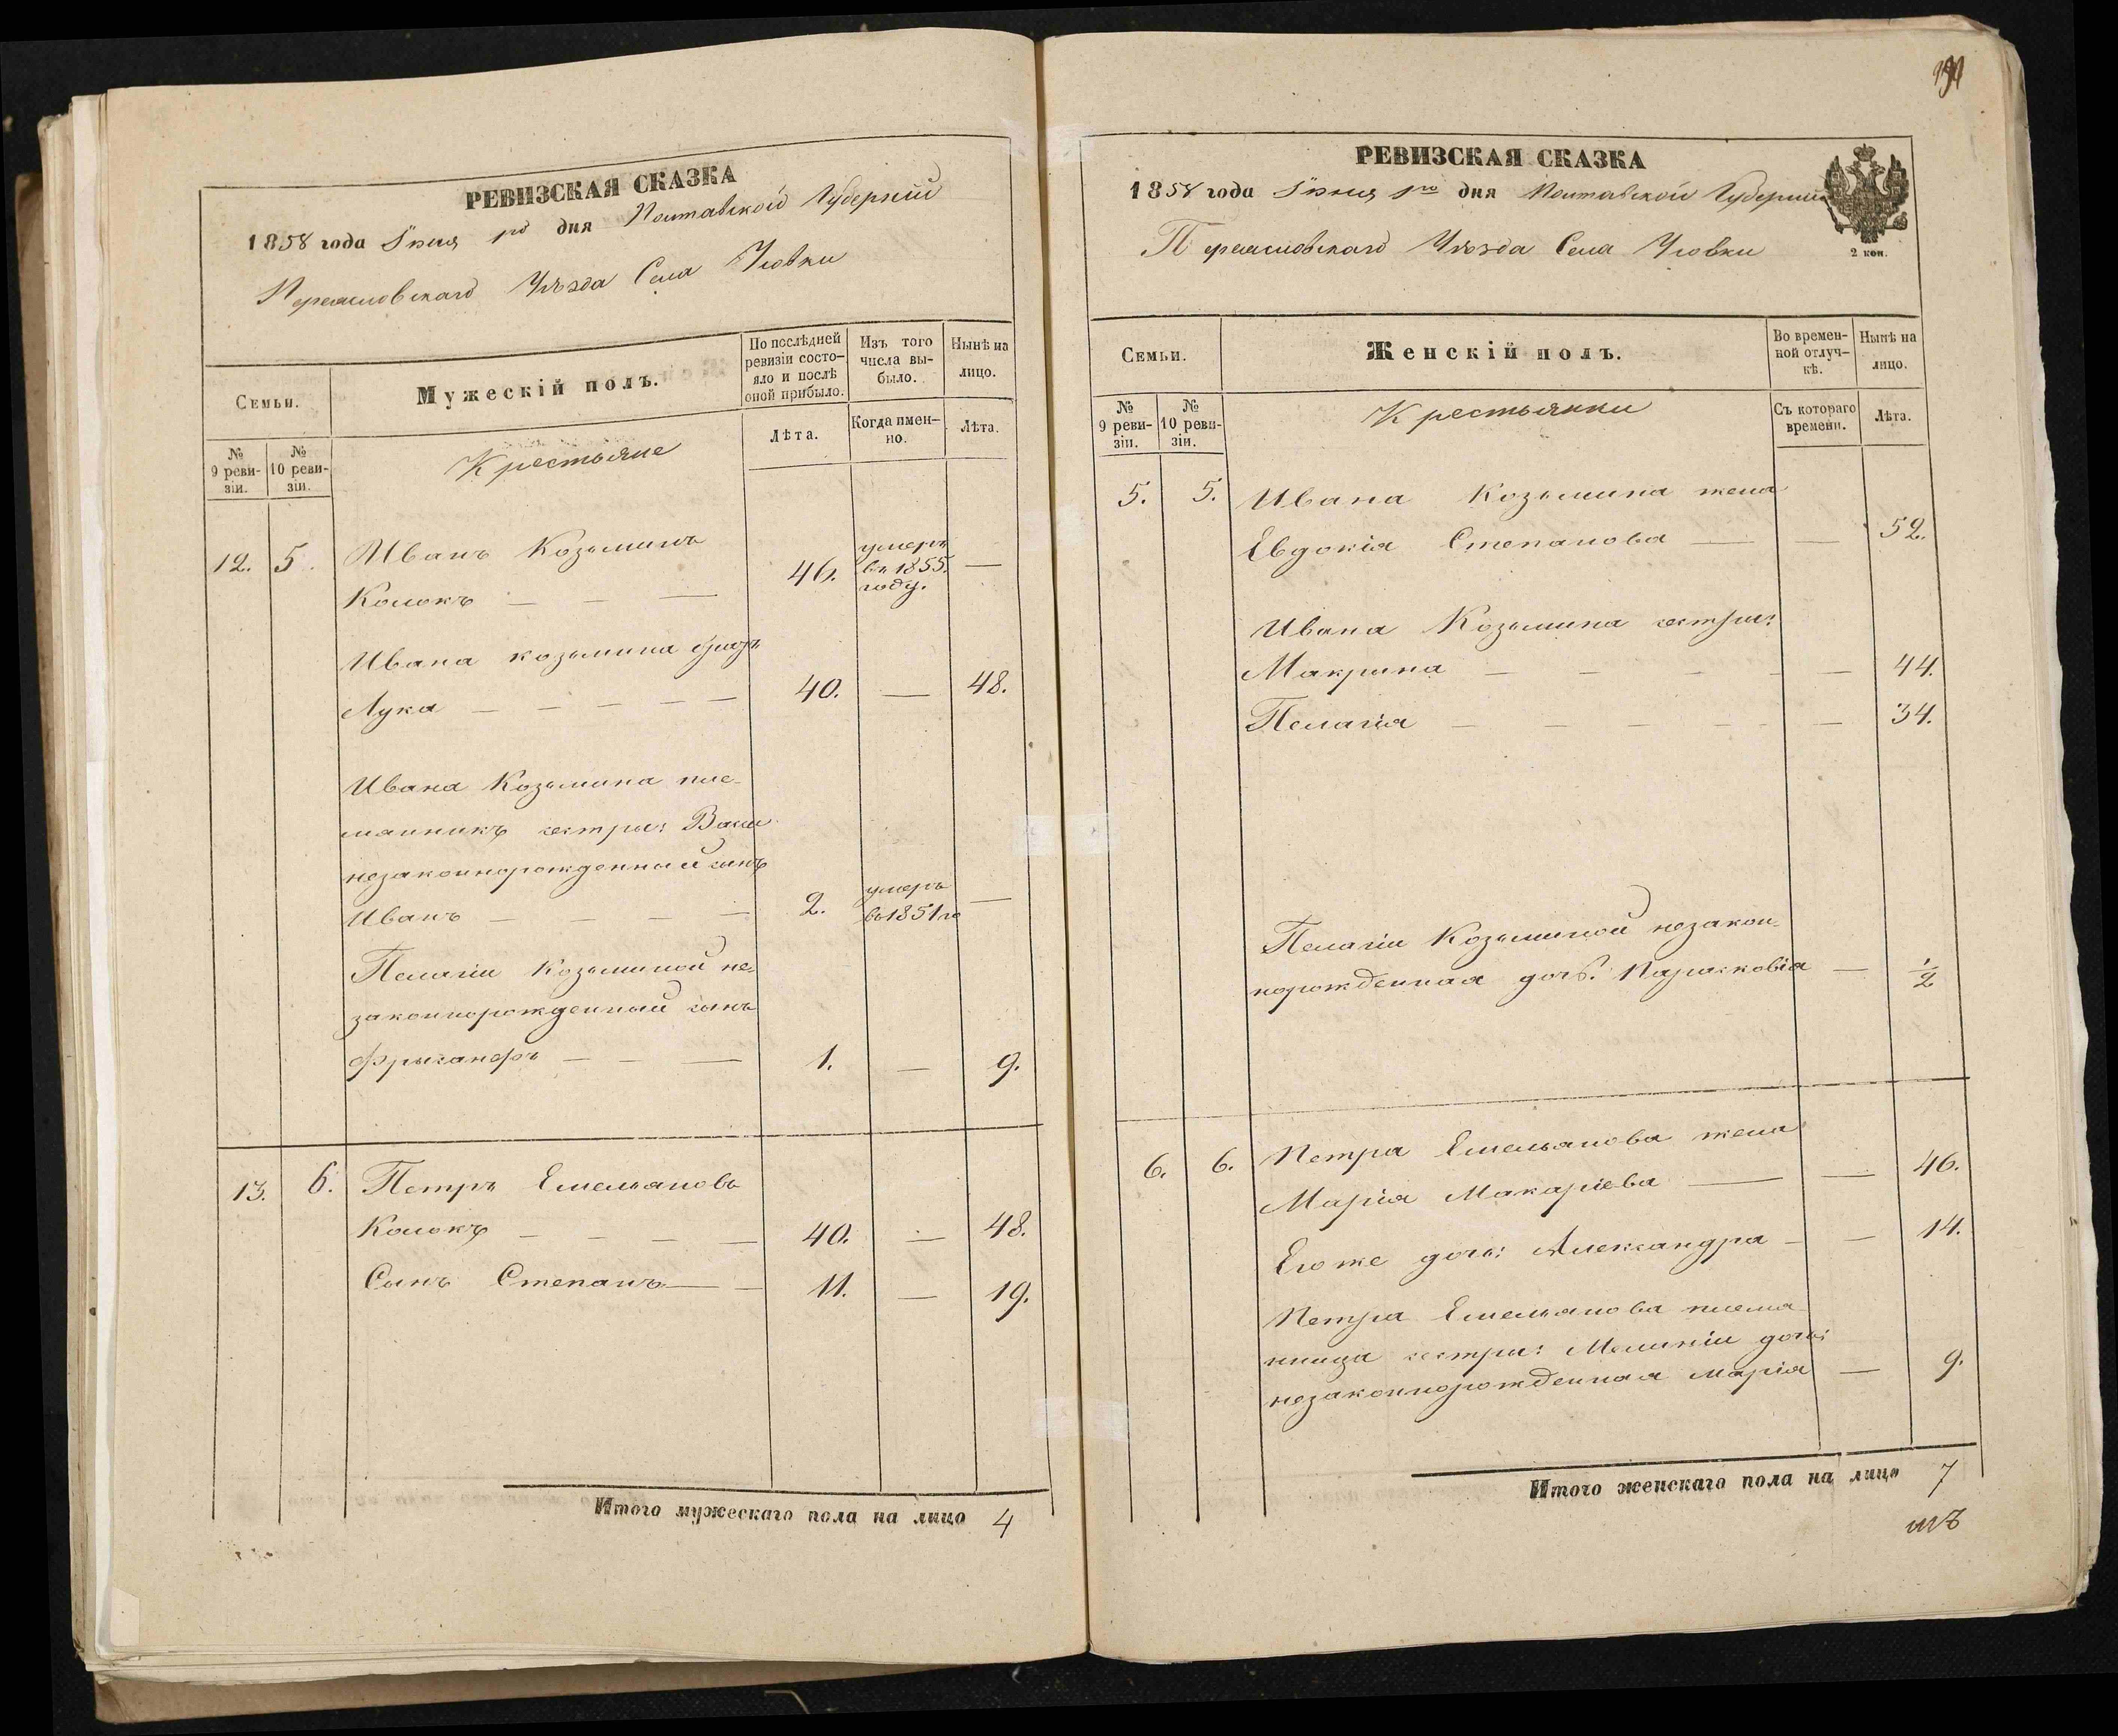 РЕВИЗСКАЯ СКАЗКА
1858 года Іюня 1го дня Полтавской Губерніи
Переяславскаго Уѣзда Села
Семьи.
Мужескій полъ.
По послѣдней ревизіи состояло и послѣ оной прибыло.
Изъ того числа выбыло.
Нынѣ на лицо.
№ 9 ревизіи.
№ 10 ревизіи.
Крестьяне
Лѣта.
Когда именно.
Лѣта.
12. 5. Иванъ Козьминъ
Колокъ — — — 46. умеръ въ 1855. году. —
Ивана козьмина братъ
Лука — — — — — 40. — 48.
Ивана Козьмина пле-
мянникъ сестры:
незаконнорожденный сынъ
Иванъ — — — — 2. умеръ въ 1851го —
Пелагіи Козьминой не-
законнорожденный сынъ
— — — 1. — 9.
13. 6. Петръ Емельяновъ
Колокъ — — — — 40. — 48.
Сынъ Степанъ — — 11. — 19.
Итого мужескаго пола на лицо 4
РЕВИЗСКАЯ СКАЗКА
1858 года Іюня 1го дня Полтавской Губерніи
Переяславскаго Уѣзда Села
2 коп.
Семьи.
Женскій полъ.
Во временной отлучкѣ.
Нынѣ на лицо.
№ 9 ревизіи.
№ 10 ревизіи.
Крестьянки
Съ котораго времени.
Лѣта.
5. 5. Ивана Козьмина жена
Евдокія Степанова — — 52.
Ивана Козьмина сестры:
Макрина — — — — — 44.
Пелагія — — — — — 34.
Пелагіи Козьминой незакон-
норожденная дочь: Парасковія — 1/2
6. 6. Петра Емельянова жена
Марія Макаріева — — 46.
Его же дочь: Александра — — 14.
Петра Емельянова племя-
нница сестры: Меланіи дочь:
незаконнорожденная Марія — 9.
Итого женскаго пола на лицо 7